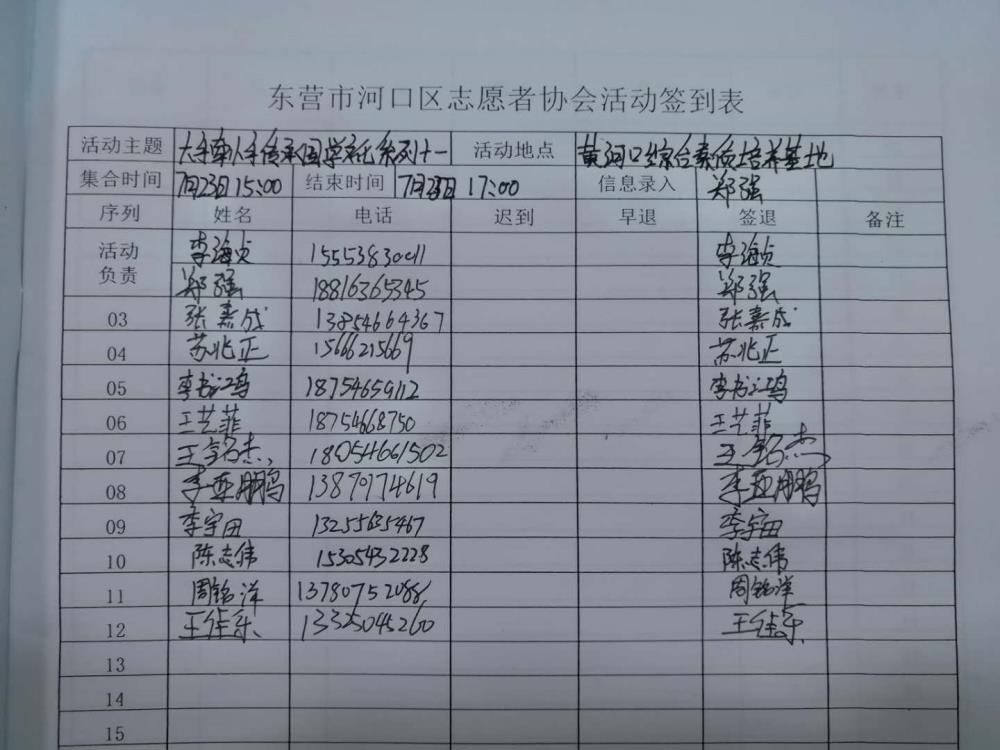 东营市河口区志愿者协会活动签到表
活动主题 大手牵小手传承国学文化系列十一 活动地点 黄河口综合素质培养基地
集合时间 7月23日 15:00 结束时间 7月23日 17:00 信息录入 郑强
序列 姓名 电话 迟到 早退 签退 备注
活动负责 李海贞 15553830011 李海贞
郑强 18816365345 郑强
03 张嘉成 13854664367 张嘉成
04 苏兆正 1566215669 苏兆正
05 李书江鸿 18754659112 李书江鸿
06 王艺菲 18754668750 王艺菲
07 王铭杰 18054661502 王铭杰
08 李亚鹏 13879774619 李亚鹏
09 李宇田 13255635467 李宇田
10 陈志伟 15305432228 陈志伟
11 周铭洋 13780752088 周铭洋
12 王佳乐 13325045260 王佳乐
13
14
15